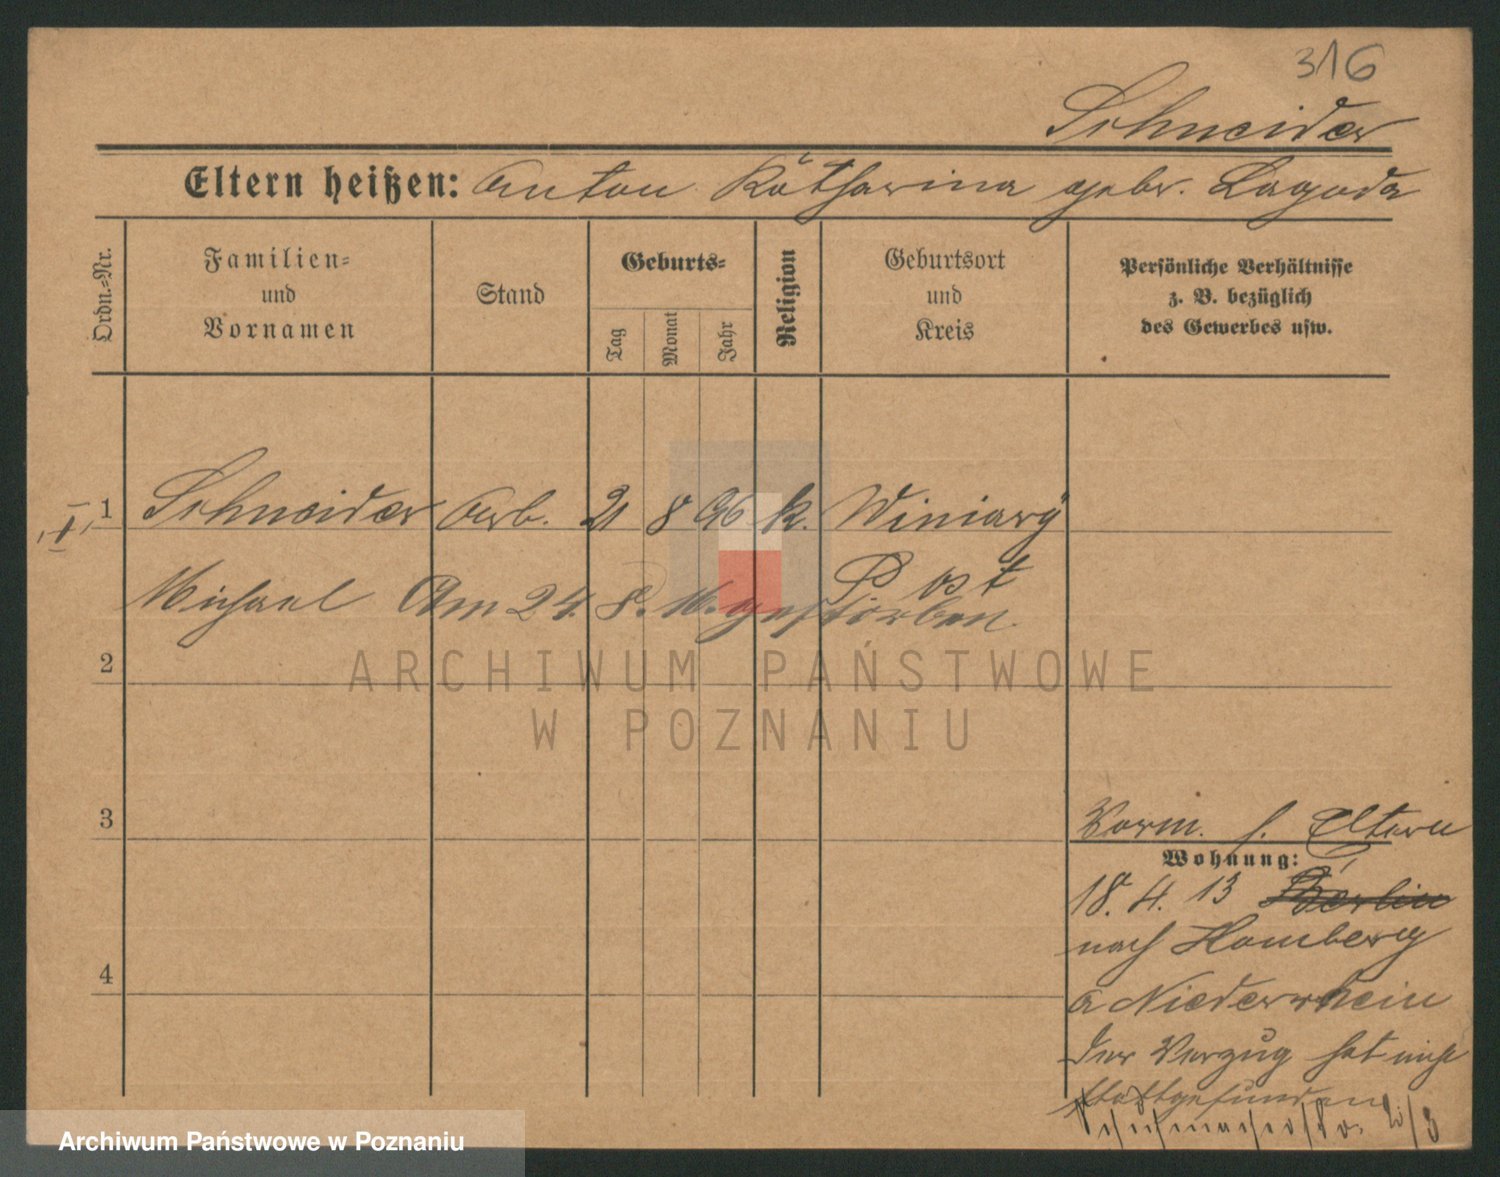 316
Schneider
Eltern heißen: Anton Katharina gebr. Lagoda
Ordn.=Nr.
Familien=
und
Vornamen
Stand
Geburts=
Tag
Monat
Jahr
Religion
Geburtsort
und
Kreis
Persönliche Verhältnisse
z. B. bezüglich
des Gewerbes usw.
1 Schneider Arb. 21 8 96 k. Winiary
Post
Michael Am 24. 8. 16. gestorben.
2
3
4
Vorm. s. Eltern
Wohnung:
18. 4. 13 Berlin
nach Homberg
a Niederrhein
Der Verzug hat nicht
stattgefunden
2/3
ARCHIWUM PAŃSTWOWE
W POZNANIU
Archiwum Państwowe w Poznaniu